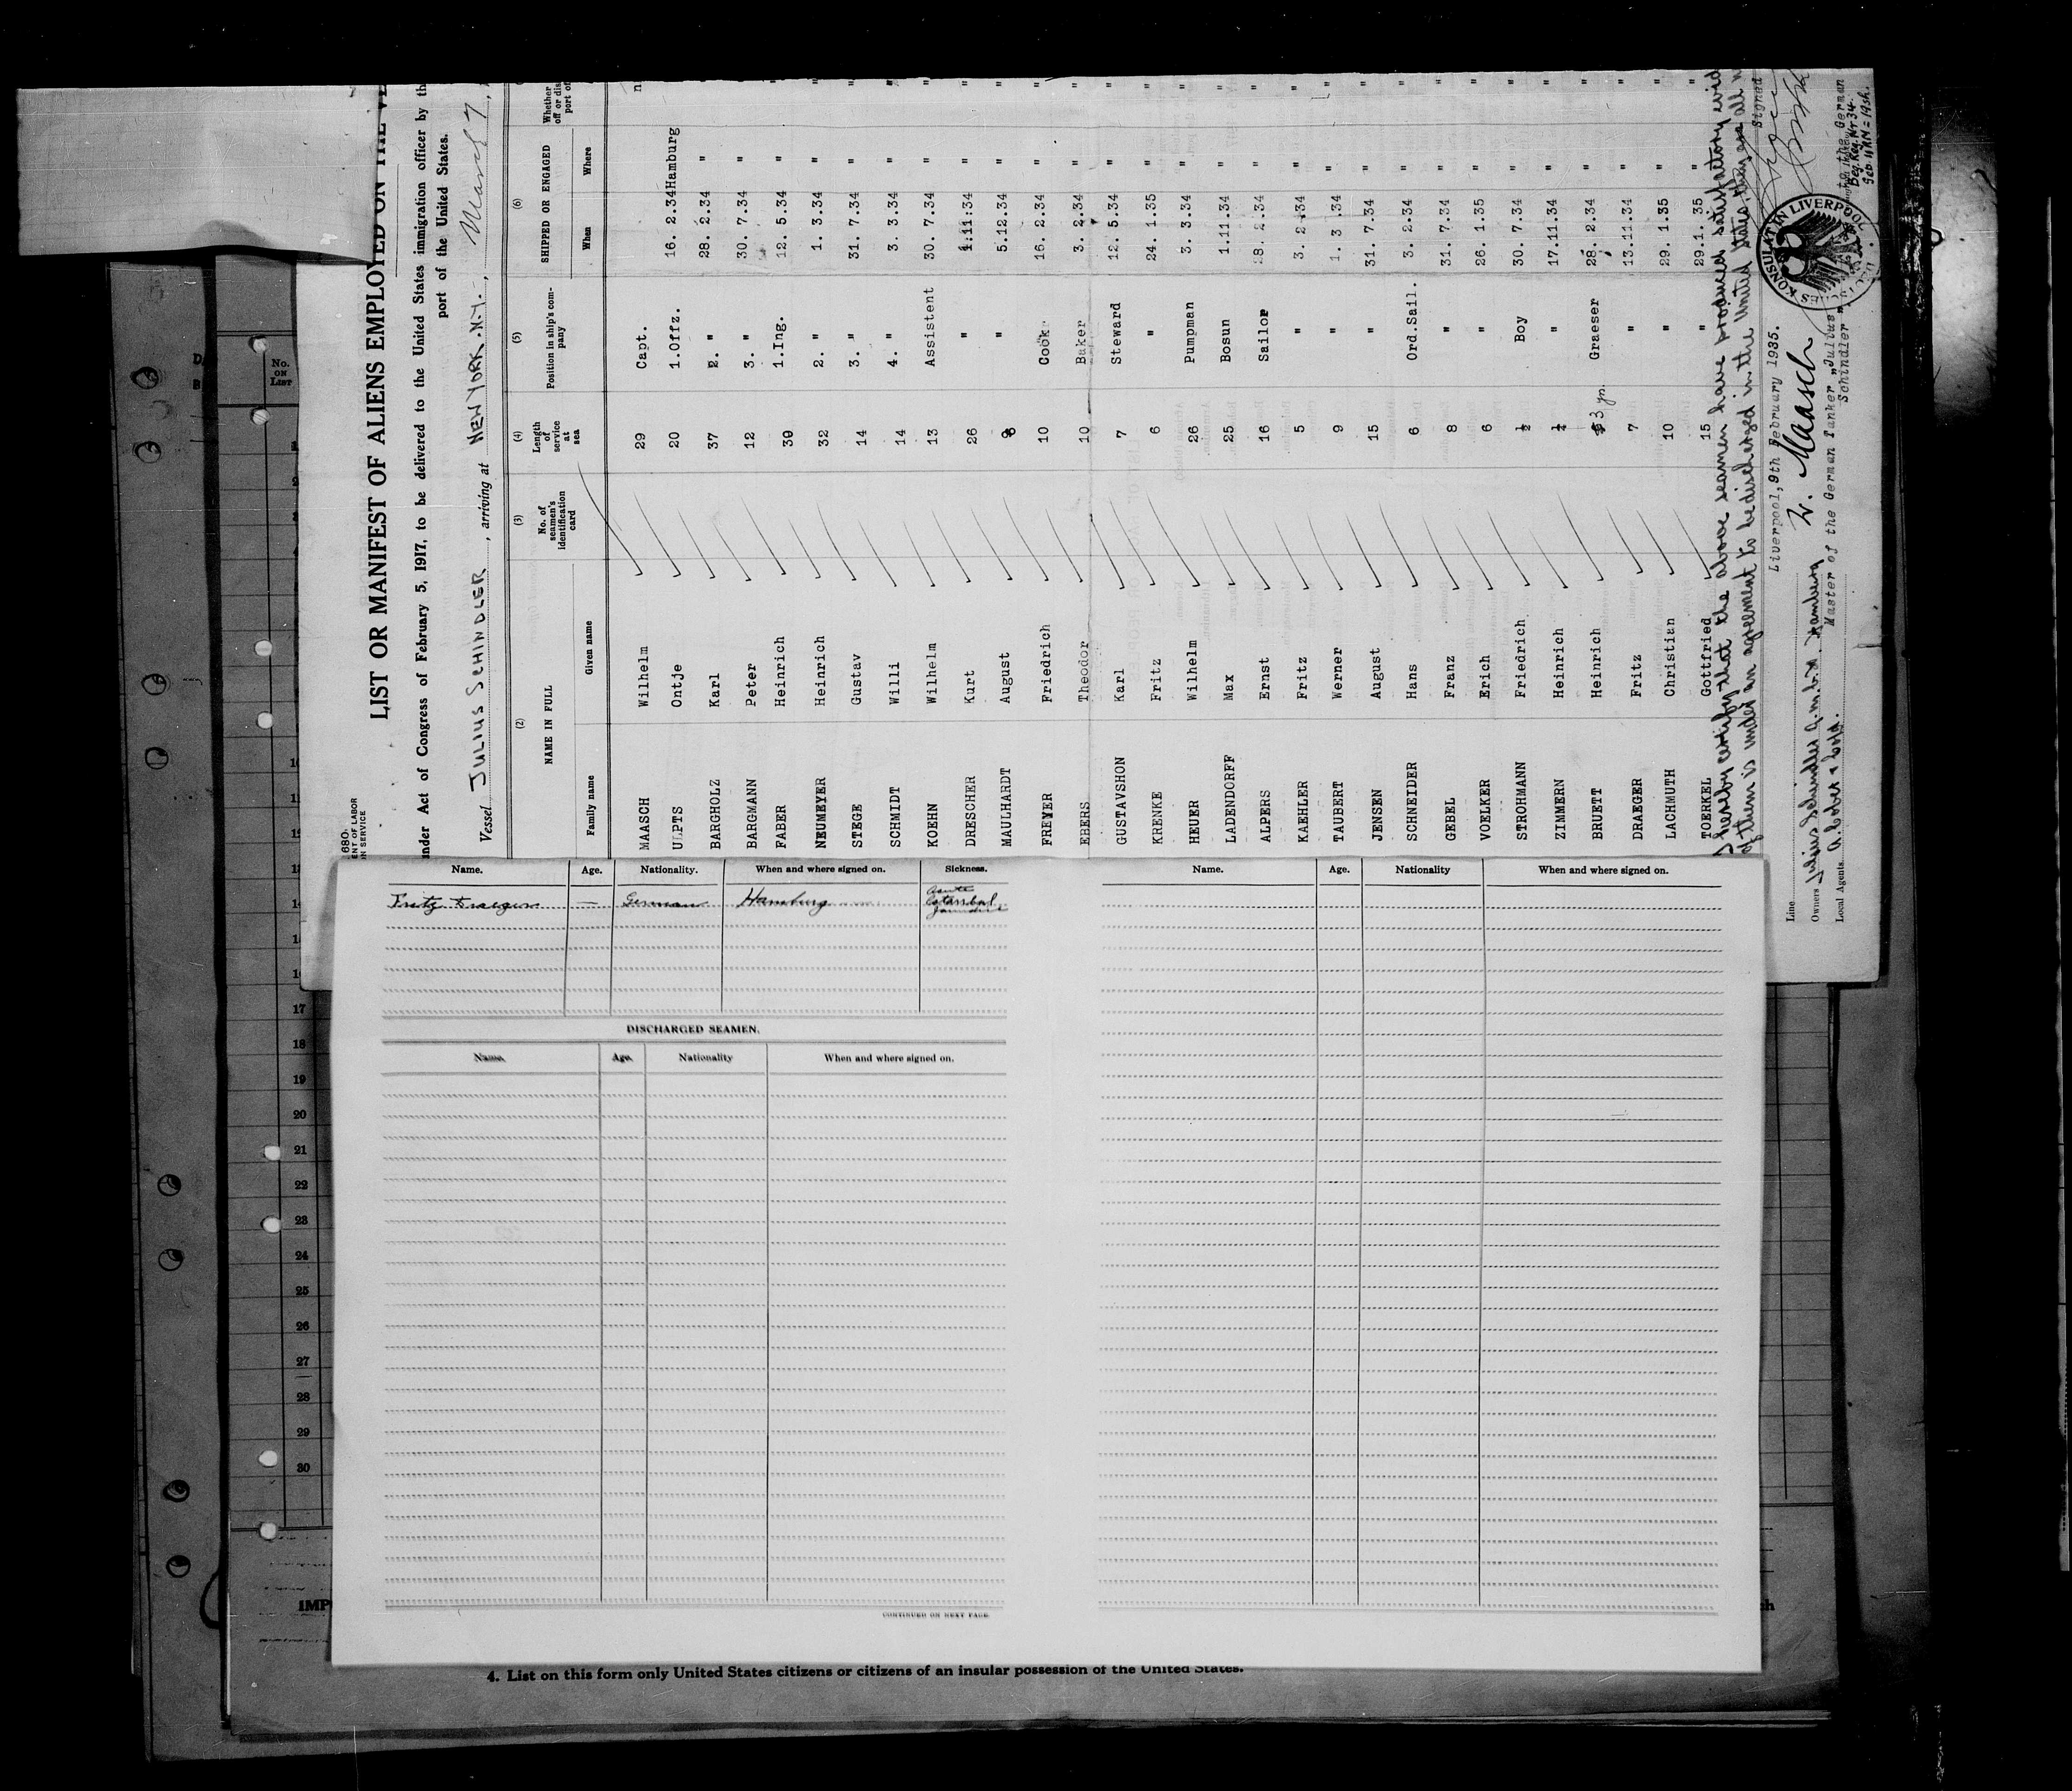 LIST OR MANIFEST OF ALIENS EMPLOYED ON THE VE
under Act of Congress of February 5, 1917, to be delivered to the United States immigration officer by th
port of the United States.
Vessel JULIUS SCHINDLER, arriving at NEW YORK.N.Y., March 7,
680.
ENT OF LABOR
N SERVICE
(2) (3) (4) (5) (6)
NAME IN FULL No. of seamen's identification card Length of service at sea Position in ship's com-pany SHIPPED OR ENGAGED Whether
Family name Given name When Where
MAASCH Wilhelm 29 Capt.
ULPTS Ontje 20 1.Offz. 16. 2.34 Hamburg
BARGHOLZ Karl 37 2. " 28. 2.34 "
BARGMANN Peter 12 3. " 30. 7.34 "
FABER Heinrich 39 1.Ing. 12. 5.34 "
NEUMEYER Heinrich 32 2. " 1. 3.34 "
STEGE Gustav 14 3. " 31. 7.34 "
SCHMIDT Willi 14 4. " 3. 3.34 "
KOEHN Wilhelm 13 Assistent 30. 7.34 "
DRESCHER Kurt 26 " 1:11:34 "
MAULHARDT August " 5.12.34 "
FREYER Friedrich 10 Cook 16. 2.34 "
EBERS Theodor 10 Baker 3. 2.34 "
GUSTAVSHON Karl 7 Steward 12. 5.34 "
KRENKE Fritz 6 " 24. 1.35 "
HEUER Wilhelm 26 Pumpman 3. 3.34 "
LADENDORFF Max 25 Bosun 1.11.34 "
ALPERS Ernst 16 Sailor 28. 2.34 "
KAEHLER Fritz 5 " 3. 2.34 "
TAUBERT Werner 9 " 1. 3 .34 "
JENSEN August 15 " 31. 7.34 "
SCHNEIDER Hans 6 Ord.Sail. 3. 2.34 "
GEBEL Franz 8 " 31. 7.34 "
VOELKER Erich 6 " 26. 1.35 "
STROHMANN Friedrich ½ Boy 30. 7.34 "
ZIMMERN Heinrich ¼ " 17.11.34 "
BRUETT Heinrich 3 yr. Graeser 28. 2.34 "
DRAEGER Fritz 7 " 13.11.34 "
LACHMUTH Christian 10 " 29. 1.35 "
TOERKEL Gottfried 15 " 29.1. 35 "
I hereby certify that the above seamen have produced satisfactory evid
of them is under an agreement to be discharged in the United States, they are all
Signed
Liverpool, 9th February 1935.
W. Maasch
Master of the German Tanker „Julius Schindler"
DEUTSCHES KONSULAT IN LIVERPOOL
Line
Owners Julius Schindler G.m.b.H. Hamburg
Local Agents
Name. Age. Nationality. When and where signed on. Sickness.
Fritz Draeger — German Hamburg Acute Catarrhal Jaundice
DISCHARGED SEAMEN.
Name. Age. Nationality When and where signed on.
CONTINUED ON NEXT PAGE.
Name. Age. Nationality When and where signed on.
No. ON LIST
17
18
19
20
21
22
23
24
25
26
27
28
29
30
IMP
4. List on this form only United States citizens or citizens of an insular possession of the United States.